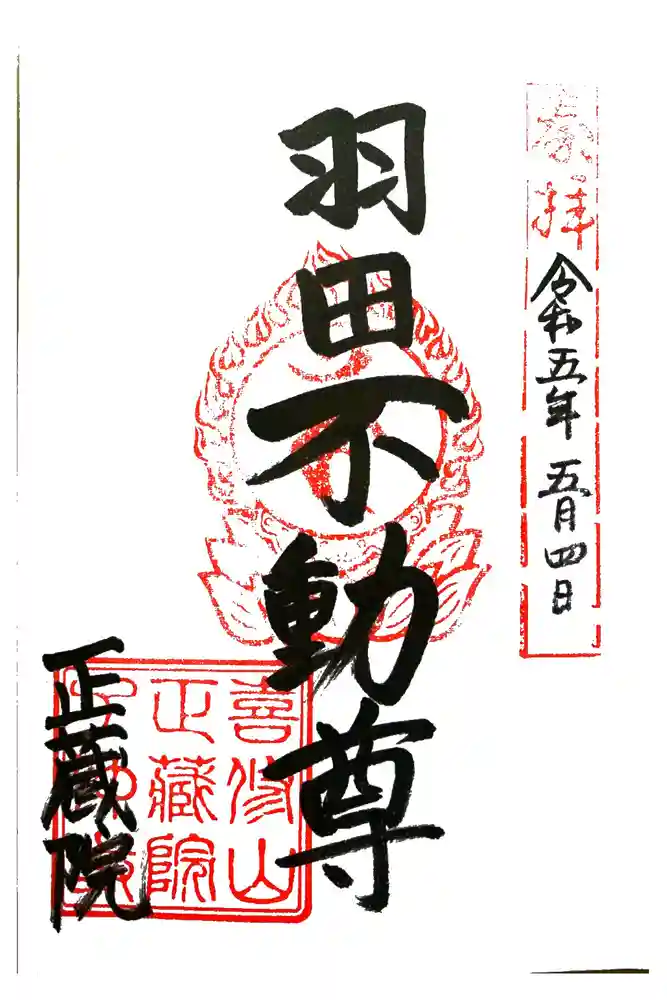 奉拝
令和五年 五月四日
羽田不動尊
喜修山
正藏院
正蔵院